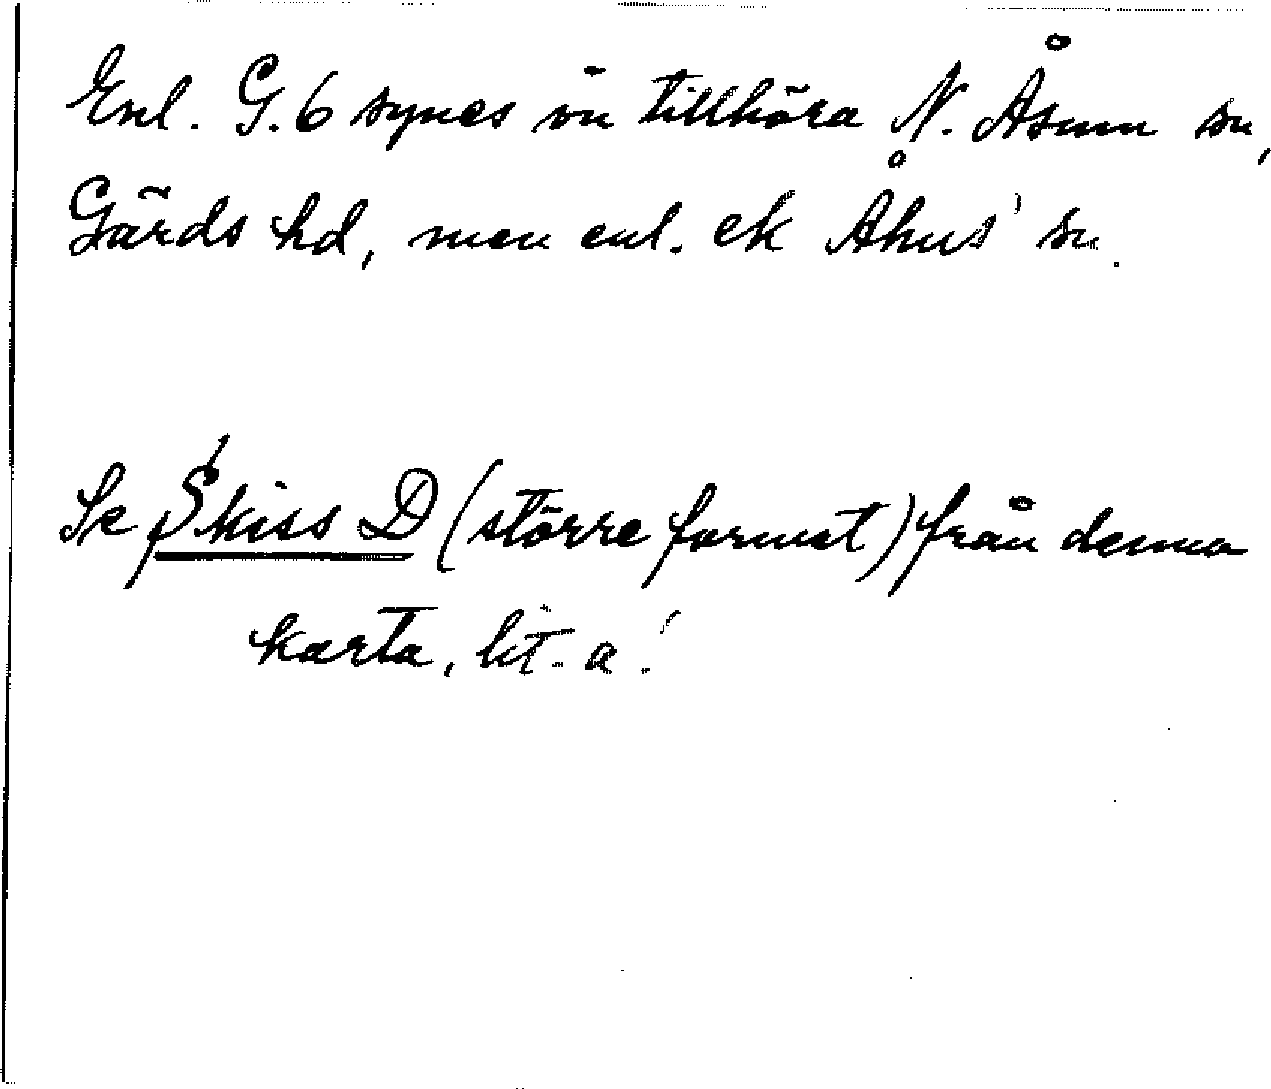 Enl. G. 6 synes ön tillhöra N. Åsum sn,
Gärds hd, men enl. ek Åhus' sn.
Se Skiss D (större format) från denna
karta, lit. a!